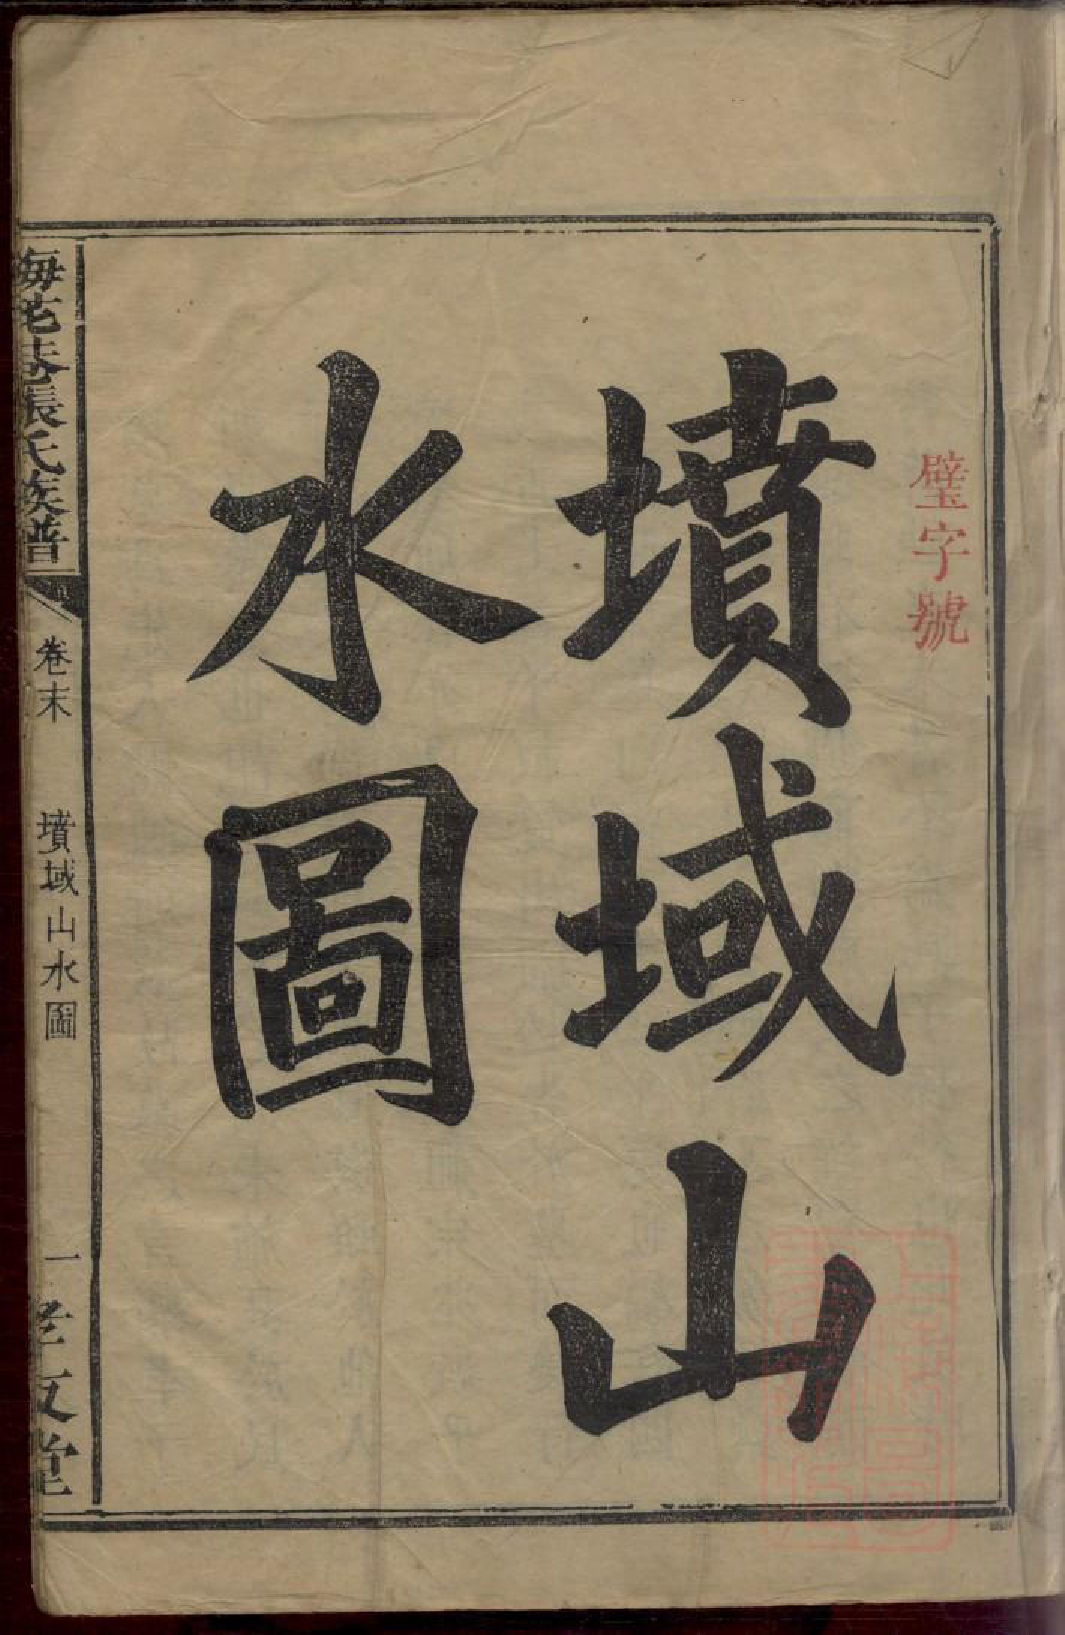 璧字號
墳域山
水圖
梅花巷張氏族譜
卷末
墳域山水圖
一
孝友堂